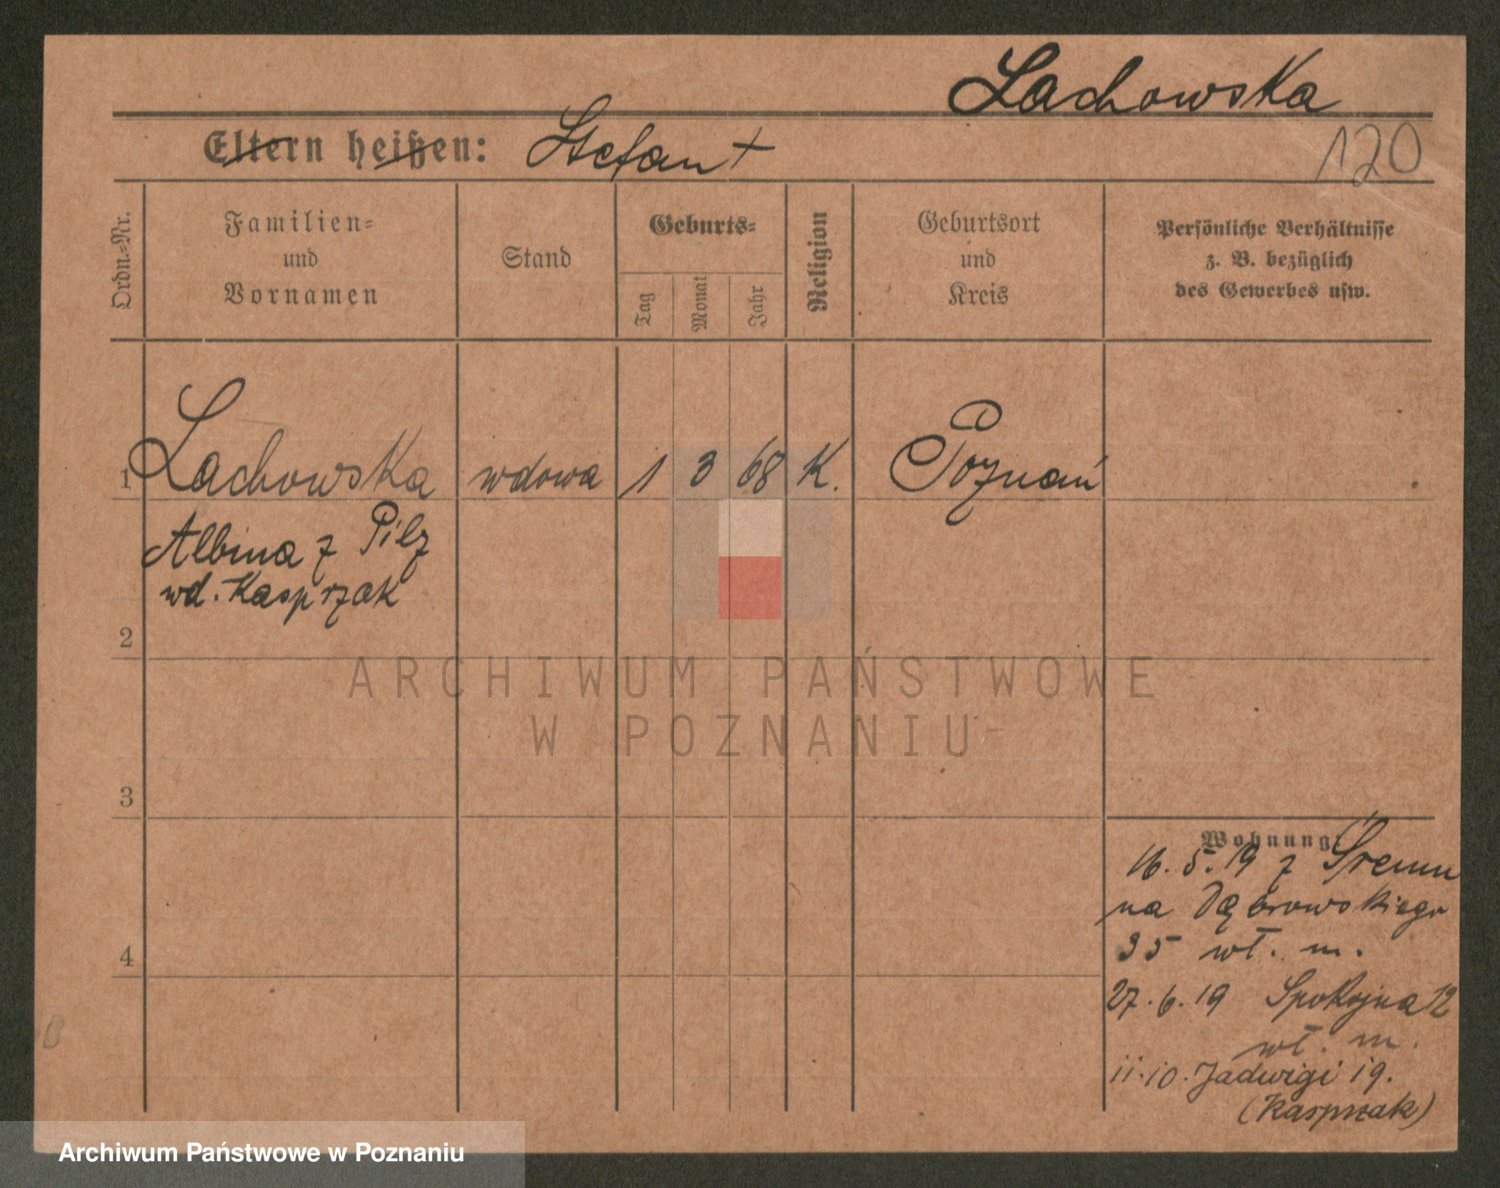 Lachowska
120
Eltern heißen: Stefan +
Ordn.-Nr.
Familien-
und
Vornamen
Stand
Geburts-
Tag
Monat
Jahr
Religion
Geburtsort
und
Kreis
Persönliche Verhältnisse
z. B. bezüglich
des Gewerbes usw.
1 Lachowska wdowa 1 3 68 K. Poznań
Albina z Pilz
wd. Kasprzak
2
ARCHIWUM PAŃSTWOWE
W POZNANIU
3
Wohnung:
16.5.19 z Śremu
na Dąbrowskiego
35 wł. m.
4
27.6.19 Spokojna 12
wł. m.
11.10. Jadwigi 19.
(Kasprzak)
Archiwum Państwowe w Poznaniu